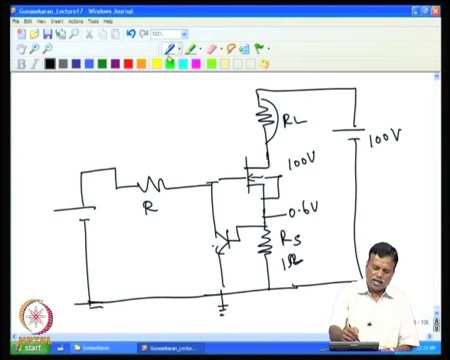 Gunasekaran_Lecture17 - Windows Journal
File Edit View Insert Actions Tools Help
100%
B I
RL
100V
100V
R
0.6V
RS
1Ω
start
Gunasekaran
Gunasekaran_Lectu...